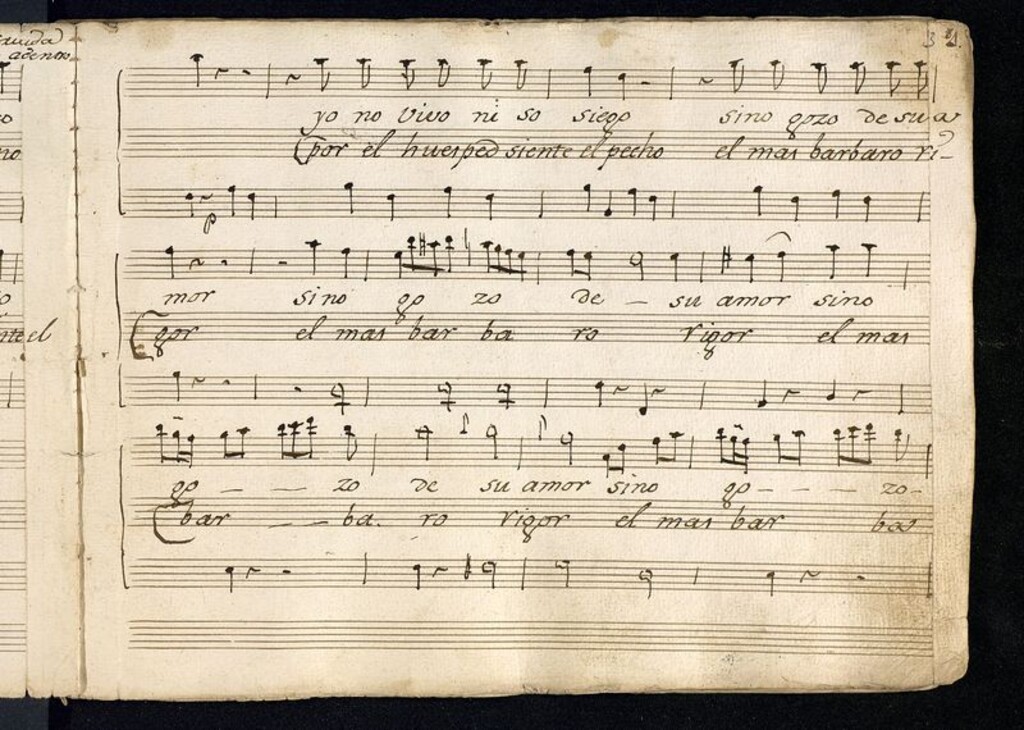 31.
adentro
yo no vivo ni so siego sino gozo de su a
por el huesped siente el pecho el mas barbaro ri-
p
mor sino go zo de - su amor sino
gor el mas bar ba ro rigor el mas
nte el
go - - - zo de su amor sino go - - - zo-
bar - - ba. ro rigor el mas bar ba